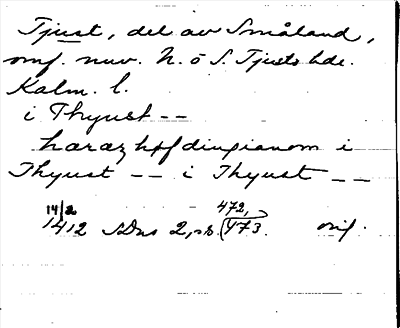 Tjust, del av Småland,
omf. nuv. N. o S. Tjusts hde.
Kalm. l.
i Thyust --
haraz höfdingianom i
Thyust -- i Thyust --
14/2 472,
1412 SDns 2, sb. 473. orig.